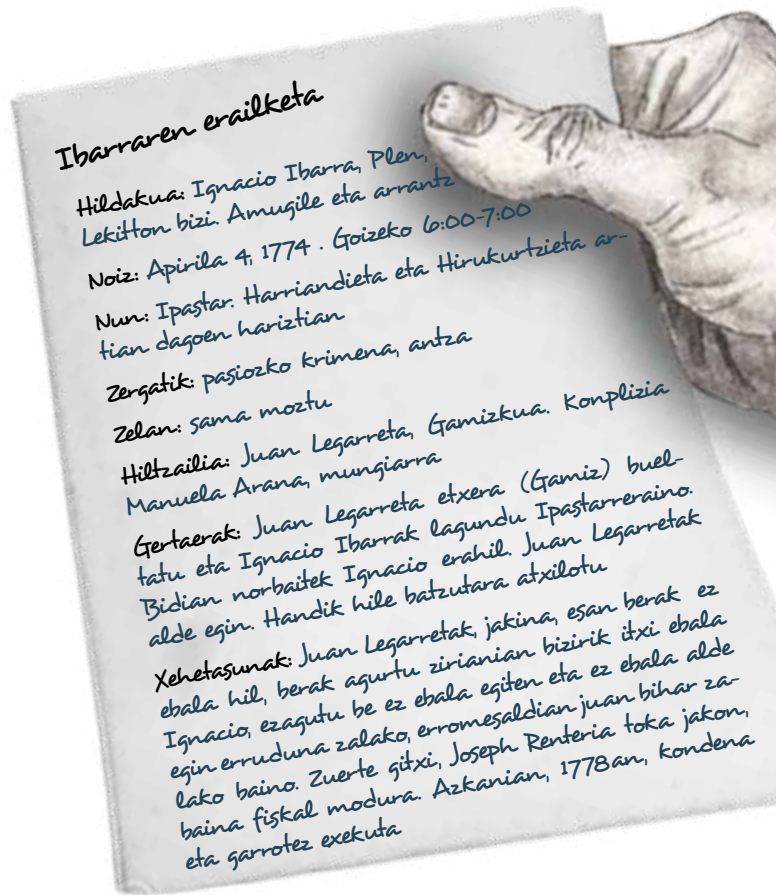 Ibarraren erailketa
Hildakua: Ignacio Ibarra, Plen,
Lekitton bizi. Amugile eta arrantz
Noiz: Apirila 4, 1774 . Goizeko 6:00-7:00
Nun: Ipastar. Harriandieta eta Hirukurtzieta ar-
tian dagoen hariztian
Zergatik: pasiozko krimena, antza
Zelan: sama moztu
Hiltzailia: Juan Legarreta, Gamizkua. Konplizia
Manuela Arana, mungiarra
Gertaerak: Juan Legarreta etxera (Gamiz) buel-
tatu eta Ignacio Ibarrak lagundu Ipastarreraino.
Bidian norbaitek Ignacio erahil. Juan Legarretak
alde egin. Handik hile batzutara atxilotu
Xehetasunak: Juan Legarretak, jakina, esan berak ez
ebala hil, berak agurtu zirianian bizirik itxi ebala
Ignacio, ezagutu be ez ebala egiten eta ez ebala alde
egin erruduna zalako, erromesaldian juan bihar za-
lako baino. Zuerte gitxi, Joseph Renteria toka jakon,
baina fiskal modura. Azkanian, 1778an, kondena
eta garrotez exekuta